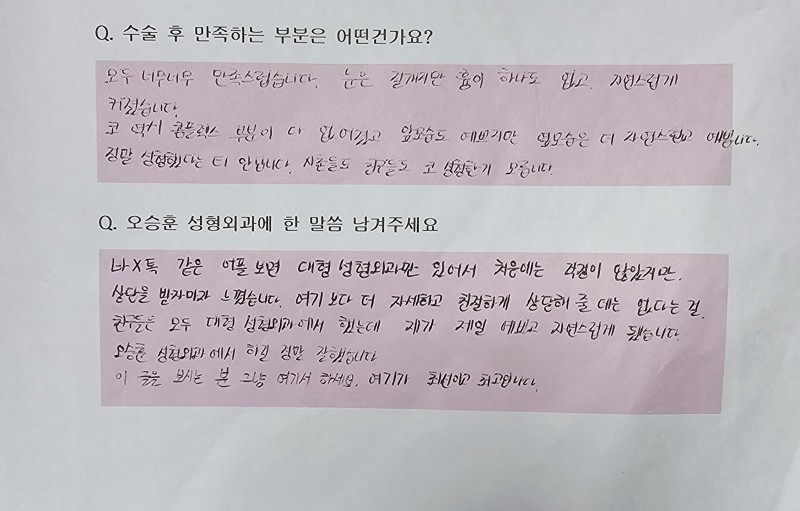 Q. 수술 후 만족하는 부분은 어떤건가요?
모두 너무너무 만족스럽습니다. 눈은 절개지만 흉이 하나도 없고, 자연스럽게
커졌습니다.
코 역시 콤플렉스 부분이 다 없어졌고 앞모습도 예쁘지만 옆모습은 더 자연스럽고 예쁩니다.
정말 성형했다는 티 안납니다. 사촌들도 친구들도 코 성형한지 모릅니다.
Q. 오승훈 성형외과에 한 말씀 남겨주세요
나X톡 같은 어플보면 대형 성형외과만 있어서 처음에는 걱정이 많았지만.
상담을 받자마자 느꼈습니다. 여기보다 더 자세하고 친절하게 상담해 줄 데는 없다는 걸.
친구들은 모두 대형 성형외과에서 했는데 제가 제일 예쁘고 자연스럽게 됐습니다.
오승훈 성형외과에서 하길 정말 잘했습니다
이 글을 보시는 분 그냥 여기서 하세요. 여기가 최선이고 최고입니다.